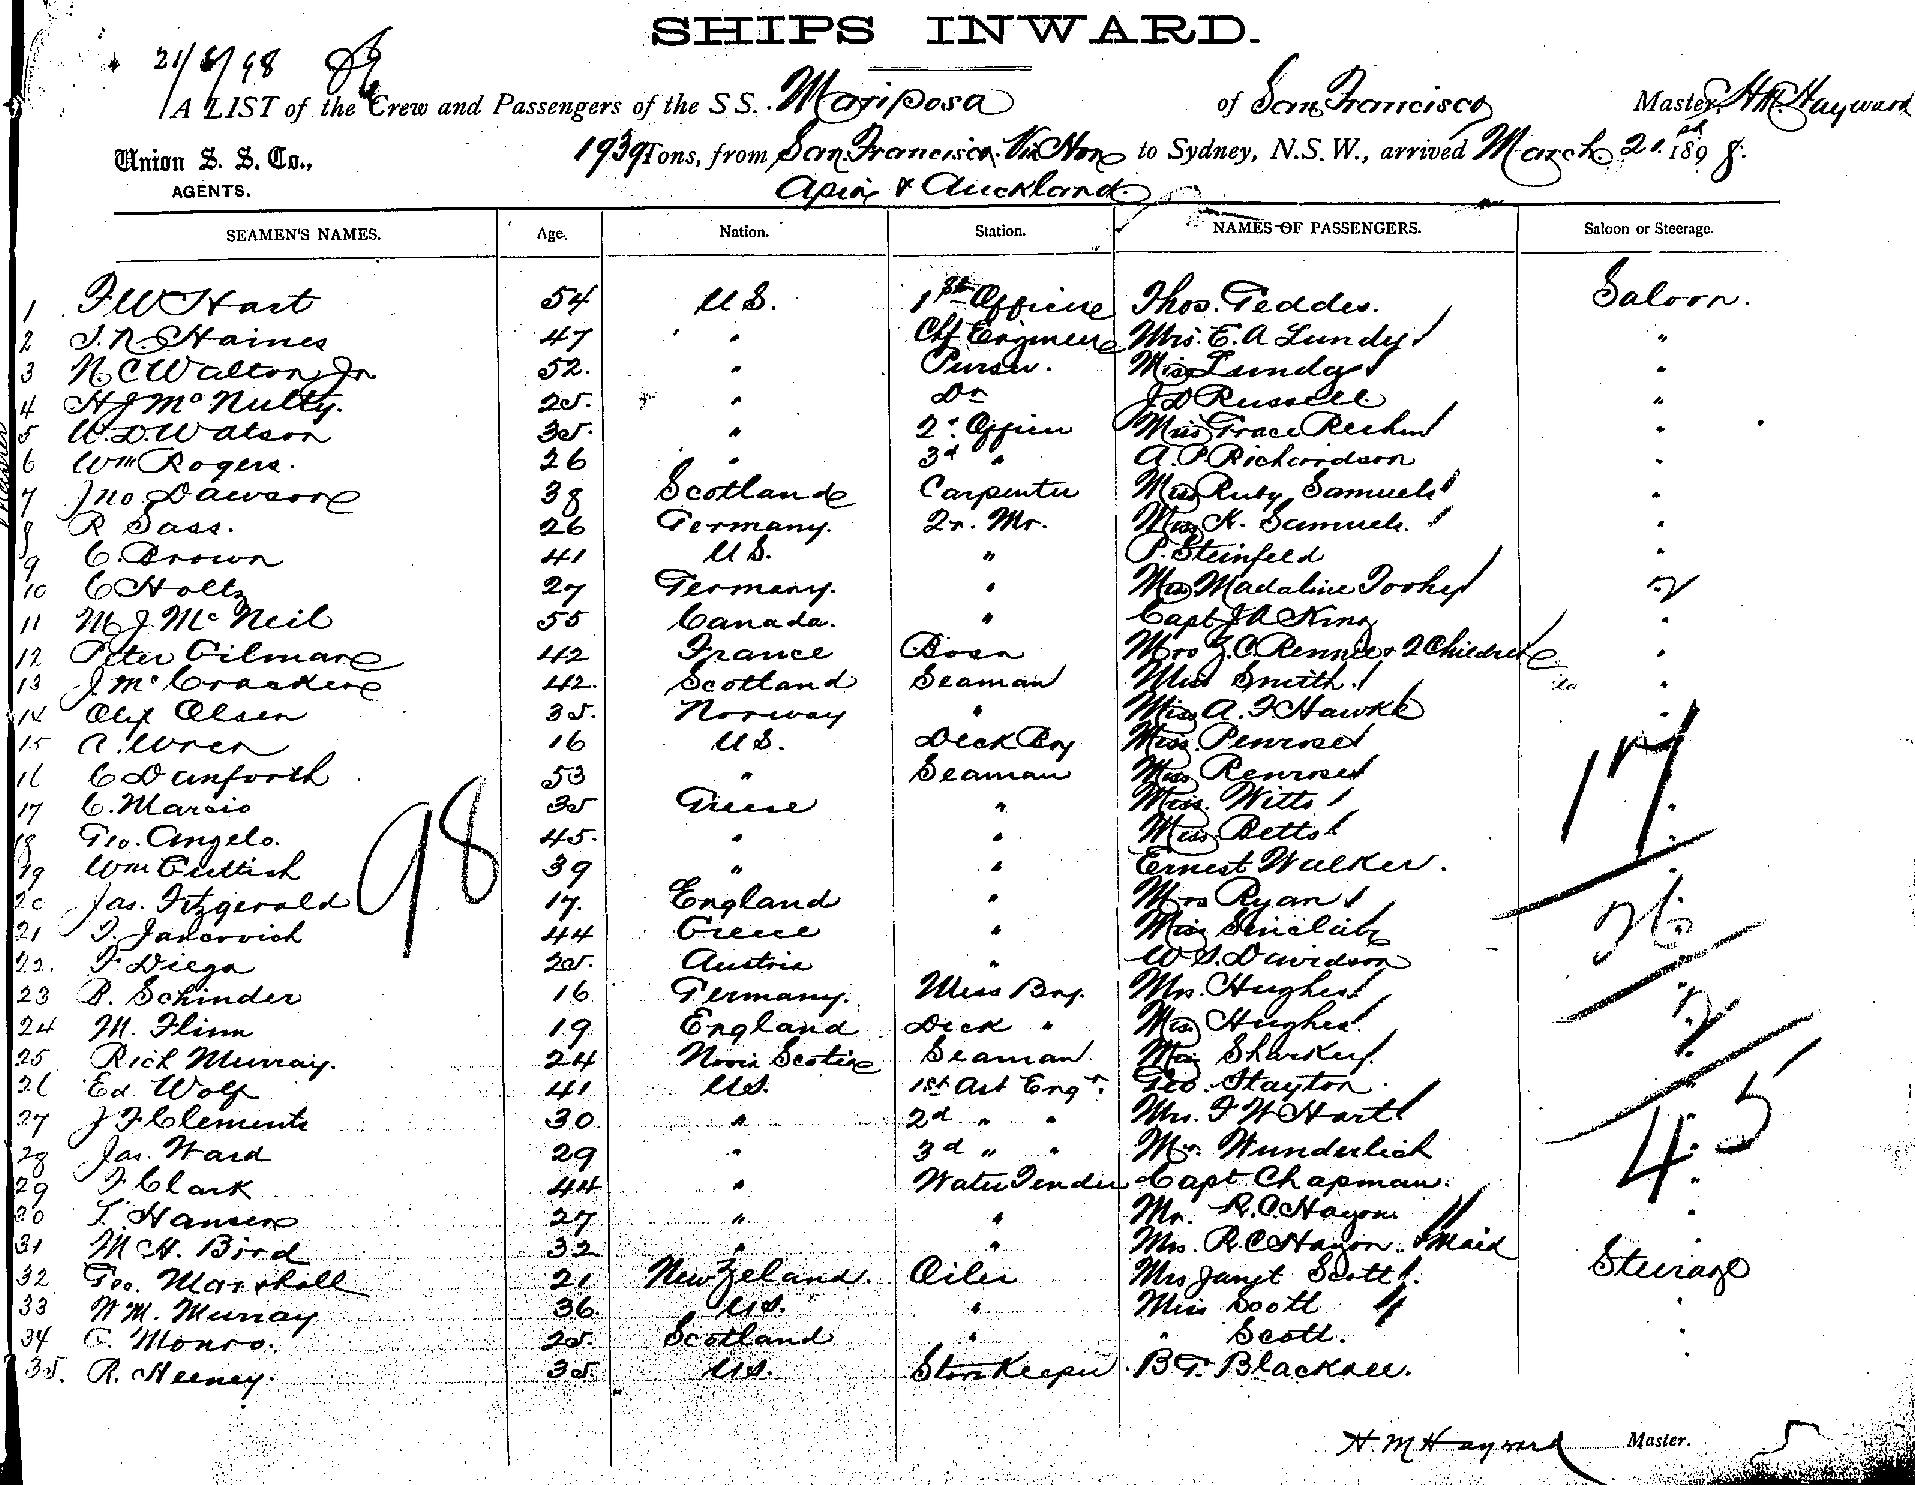 SHIPS INWARD.
21/3/98
A LIST of the Crew and Passengers of the SS. Mariposa of San Francisco Master, H.M. Hayward
Union S. S. Co., 1939 Tons, from San Francisco Via Hon to Sydney, N.S.W., arrived March 21st 1898.
AGENTS. Apia & Auckland.
SEAMEN'S NAMES. Age. Nation. Station. NAMES OF PASSENGERS. Saloon or Steerage.
1 F W Hart 54 U S. 1st Officer Thos. Geddes. Saloon.
2 J. N. Haines 47 " Chf Engineer Mrs. E. A Lundy "
3 N. C Walton Jr 52. " Purser. Miss Lundy "
4 H J McNulty. 25. " Dr J D Russell "
5 W. D. Watson 35. " 2d. Officer Miss Grace "
6 Wm Rogers. 26 " 3d " A. P Richardson "
7 Jno. Dawson 38 Scotland Carpenter Miss Ruby Samuels "
8 R Sass. 26 Germany. Qr. Mr. Miss H. Samuels. "
9 C. Brown 41 U S. " P. Steinfeld "
10 C Holtz 27 Germany. " Miss Madaline Toohey
11 M J. McNeil 55 Canada. " Capt J A King "
12 Peter Gilmar 42 France Bosn Mrs J. C. Rennie & 2 Children "
13 J McCracken 42. Scotland Seaman Miss Smith. "
14 Olaf Olsen 35. Norway " Miss A. F Hawke "
15 A. Wren 16 U S. Deck Boy Miss Penrose
16 C Danforth 53 " Seaman Miss Penrose
17 C. Marcio 35 Greece " Miss. Witts 17
18 Geo. Angelo. 45. " " Miss Betts
19 Wm 39 " " Ernest Walker.
98
20 Jas. Fitzgerald 17. England " Mrs Ryan
21 J. Jancovich 44 Greece " Miss Sinclair 26
22. F Diega 25. Austria " W S. Davidson
23 B. Schinder 16 Germany. Mess Boy. Mrs. Hughes
24 M. Flinn 19 England Deck " Miss Hughes 2
25 Rich Murray. 24 Nova Scotia Seaman Miss Sharkey
26 Ed Wolf 41 US. 1st Ast Engr. Geo. Slayton
27 J F Clements 30. " 2d " " Mrs. F W Hart
28 Jas. Ward 29 " 3d " " Mr. Wunderlich 45
29 F Clark 44 " Water Tender Capt Chapman.
30 T. Hansen 27 " " Mr. R. C. Hagon
31 M H. Bird 32 " " Mrs. R. C Hagon. & Maid
32 Geo. Marshall 21 New Zeland. Oiler Mrs Janet Scott. Steerage
33 W M. Murray 36 US. " Miss Scott "
34 C. Monro. 25. Scotland " " Scott. "
35. R. Heeney. 35. US. Storekeeper B. T. Blackall. "
H. M Hayward Master.